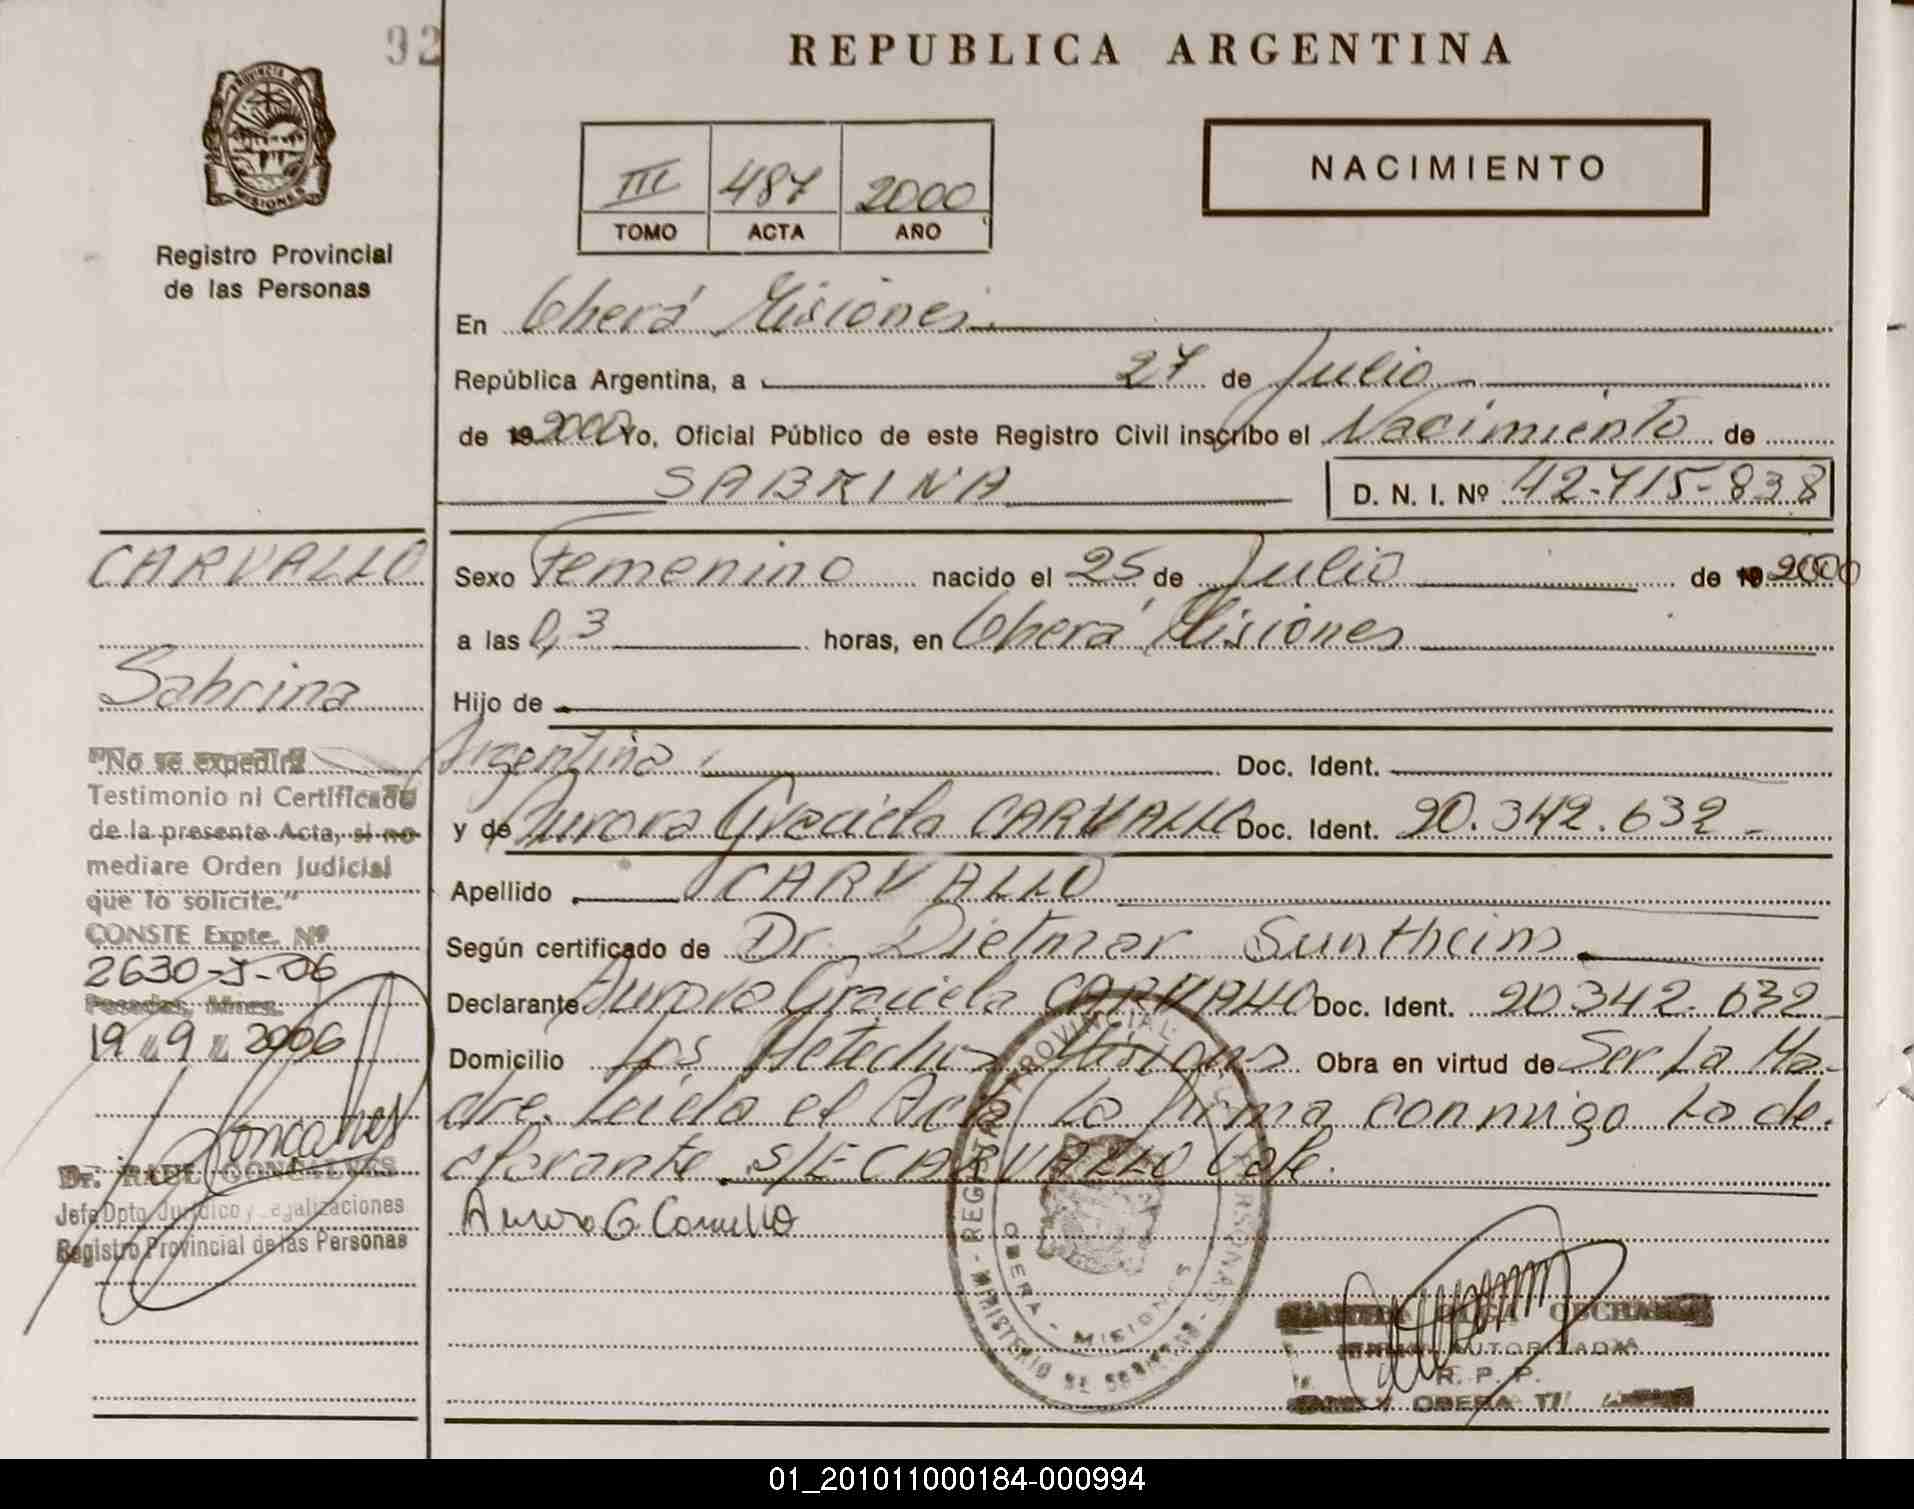 92
REPUBLICA ARGENTINA
PROVINCIA D
MISIONES
Registro Provincial
de las Personas
III 487 2000
TOMO ACTA AÑO
NACIMIENTO
En Oberá Misiones.
República Argentina, a 27 de Julio
de 19 2000 Yo, Oficial Público de este Registro Civil inscribo el Nacimiento de
SABRINA D. N. I. Nº 42-715-838
CARVALLO
Sabrina
Sexo Femenino nacido el 25 de Julio de 19 2000
a las 0,3 horas, en Oberá Misiones
Hijo de
Argentina. Doc. Ident.
y de Aurora Graciela CARVALLO Doc. Ident. 20.342.632-
Apellido CARVALLO
Según certificado de Dr. Dietmar Suntheim
Declarante Aurora Graciela CARVALLO Doc. Ident. 20.342.632
Domicilio Los Helechos Misiones Obra en virtud de Ser La Ma-
dre. Leida el Acta La firma conmigo La de-
clarante S/E CARVALLO Vale.
Aurora G Carvallo
"No se expedirá
Testimonio ni Certificado
de la presente Acta, si no
mediare Orden Judicial
que lo solicite."
CONSTE Expte. Nº
2630-J-06
Posadas, Mnes.
19 9 2006
Dr. RAUL GONCALVES
Jefe Dpto. Jurídico y Legalizaciones
Registro Provincial de las Personas
REGISTRO PROVINCIAL DE LAS PERSONAS
MINISTERIO DE GOBIERNO
OBERA - MISIONES
AUTORIZADA
R. P. P.
OBERA
01_201011000184-000994